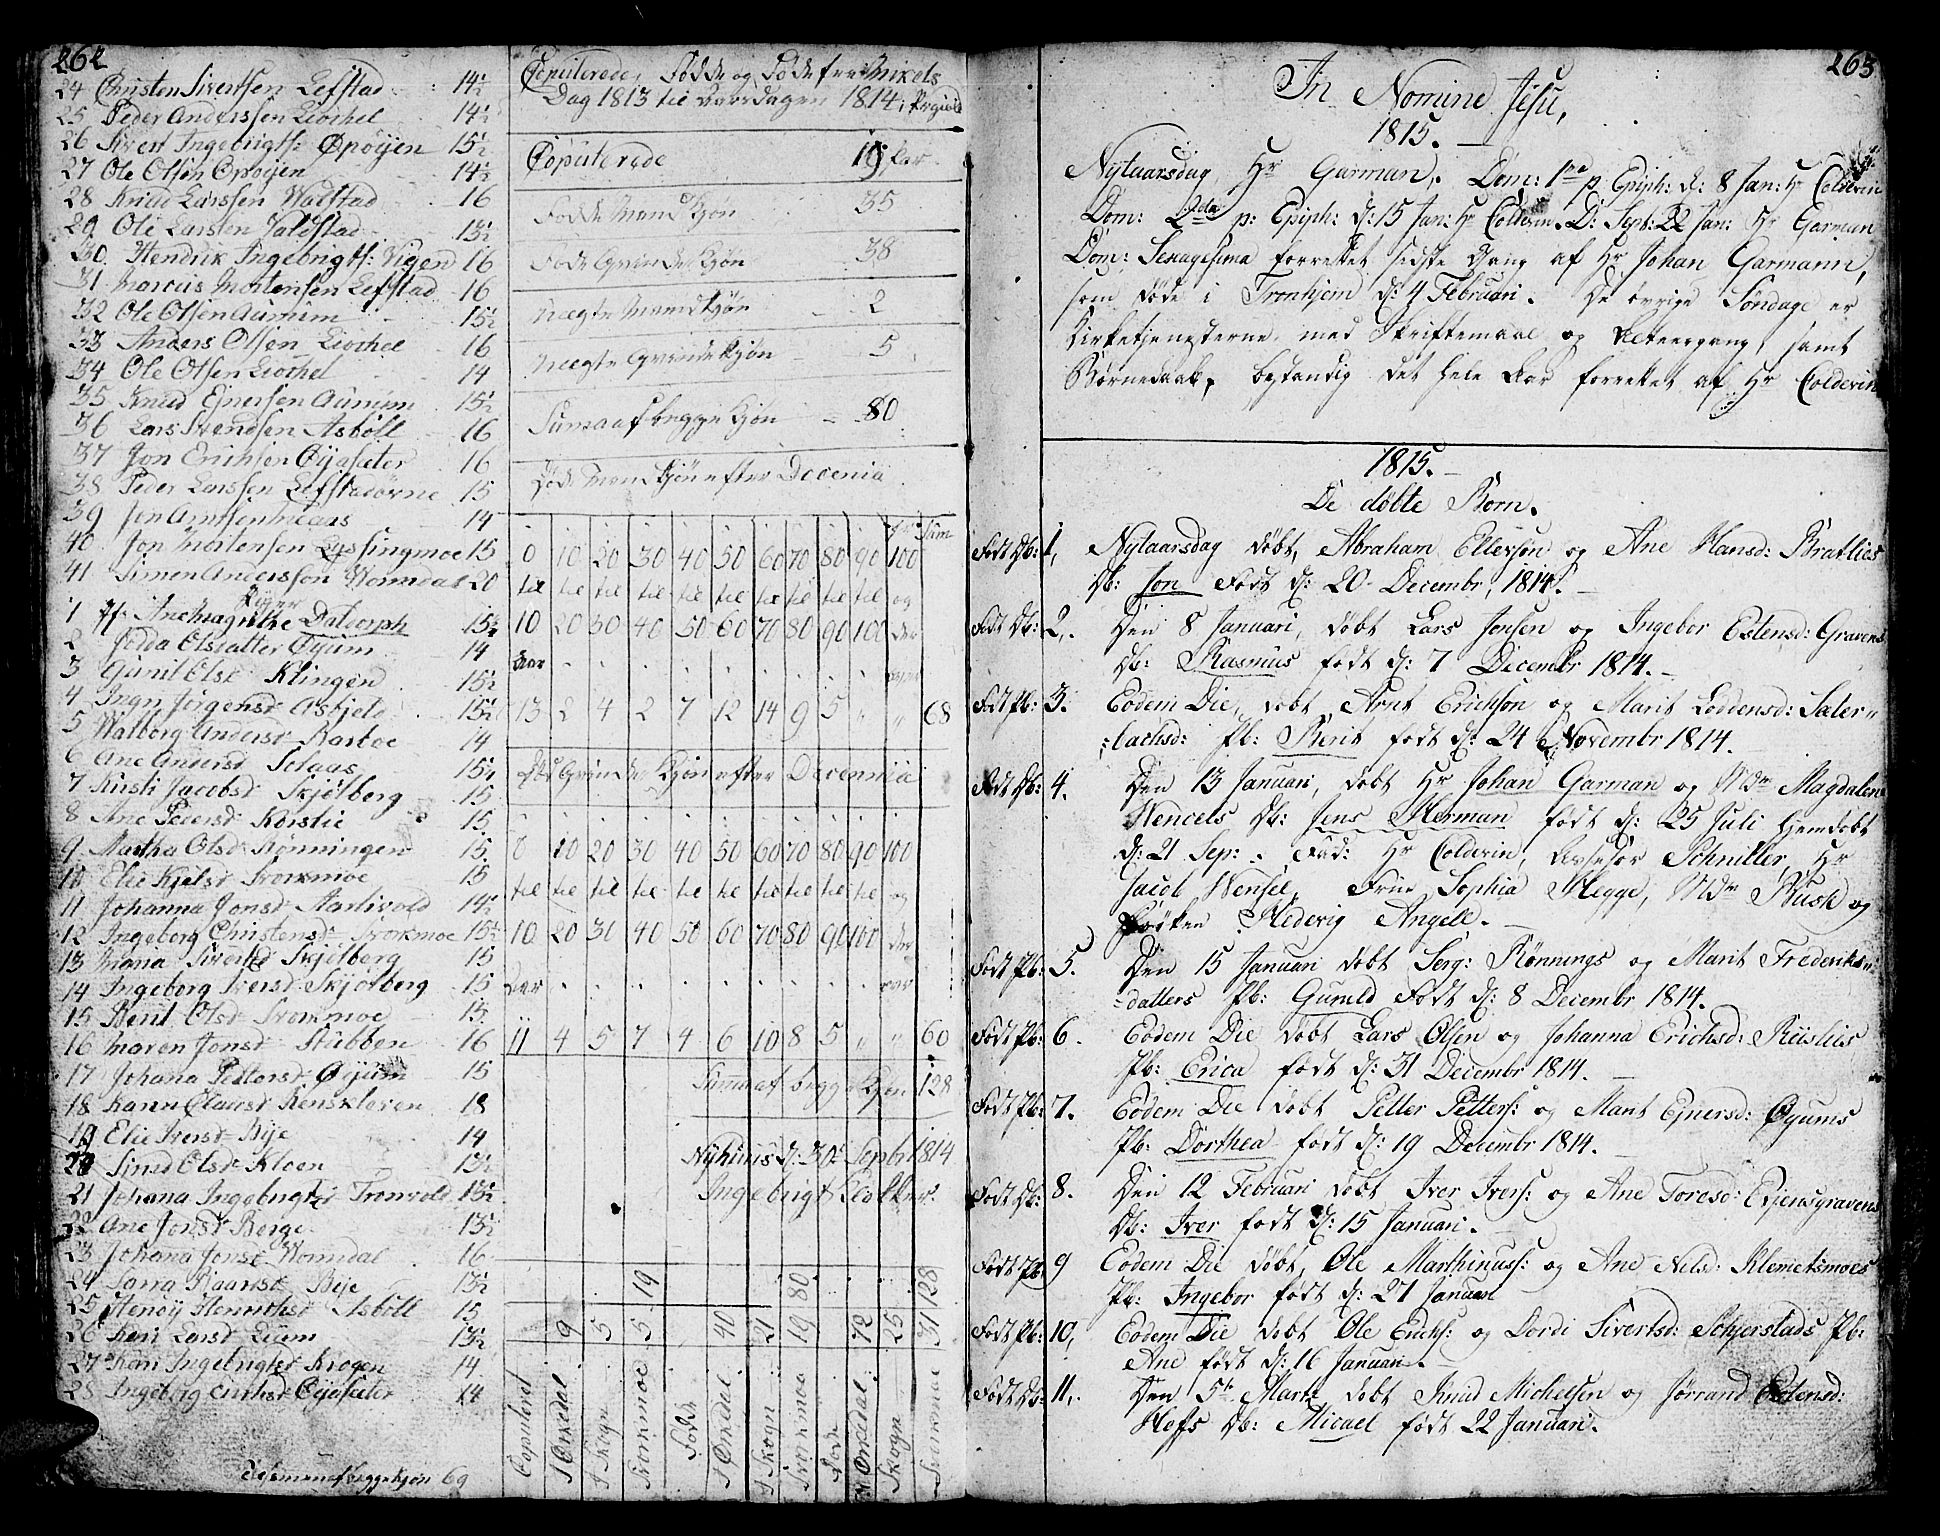 262
24 Christen Sivertsen Lefstad 14½
25 Peder Anderssen Liochel 14½
26 Sivert Ingebrigts: Øpøijen 15½
27 Ole Olsen Opøijen 14½
28 Knud Larssen Walstad 16
29 Ole Larsen Jaldstad 13½
30. Hendrik Ingebrigts: Vigen 16
31 Marcus Mortensen Lefstad 16
32 Ole Olsen Aumum 15½
33 Anders Olsen Liochel 16
34 Ole Olsen Liochel 14
35 Knud Ejnersen Aumum 15½
36 Lars Svendsen Asbøll 16
37 Jon Erichsen Øijasæter 16
38 Peder Larssen Lefstadøvne 15
39 Jon Arntsen 14
40 Jon Mortensen Lyssingmoe 15
41 Simen Anderssøn Womdal 20
1 Jfr Ane Magrethe Daldorph 15½
2 Olsdatter Øyum 14
3 Gunil Olsd Klingen 15½
4 Ingri Jørgensd Asbjels 15½
5 Walborg Andersd Kastoe 14
6 Ane Andersd Solaas 15½
7 Kirsti Jacobsd Skjølberg 15
8 Ane Pedersd Korslie 15
9 Martha Olsd Rønningen 15
10 Elie Kjelsd Srorkmoe 15
11 Johanna Jonsd Aarlivold 14½
12 Ingeborg Christensd Srorkmoe 15½
13 Mana Sivertsd Skjølberg 15
14 Ingeborg Iversd Skjølberg 15
15 Berit Olsd Srorkmoe 15
16 Maren Jonsd Stubben 16
17 Johana Pettersd Øyum 15
18 Karen Clausd Renskleven 18
19 Elie Iversd Bije 14
20 Sined Olsd Kloen 13½
21 Johana Ingebrigtsd Trinvold 13½
22 Ane Jonsd Berge 13½
23 Johana Jonsd Womdal 16
24 Sara Haansd Beje 13½
25 Henøy Henrichsd Asbøll 15
26 Kari Larsd Lium 13½
27 Kari Ingebrigtsd Krogen 14
28 Ingeborg Erichsd Øijasæter 14
Summen af begge kjøn 69
Copulerede, Fødde og Døde fra Mikels
Dag 1813 til Aarsdagen 1814 i Prgield
Copulerede 19 Par
Fødde Mandkjøn 35
Føde Qvindekjøn 38
Uægte Mandkjøn 2
Uægte Qvindekjøn 5
Suma af begge Kjøn 80
Døde Mandkjøn efter Decenia
Sum
0 10 20 30 40 50 60 70 80 90 100
til til til til til til til til til til og
10 20 30 40 50 60 70 80 90 100 der
Aar over
13 2 4 2 7 12 14 9 5 " " 68
Død Qvindekjøn efter Decennia
0 10 20 30 40 50 60 70 80 90 100
til til til til til til til til til til og
10 20 30 40 50 60 70 80 90 100 der
Aar over
11 4 5 7 4 6 10 8 5 " " 60
Suma af begge Kjøn 128
Nyhuus d: 30te Septbr 1814
Ingebrigt Klokker.
19 80 128
9 5 5 40 21 19 72 25 31
Copuleret
I Ørkedal
I Skogn
Srorkmoe
Fødde
I Ørkedal
I Skogn
Srorkmoe
Døde
Ørkedal
Skogn
Srorkmoe
263
In Nomine Jesu,
1815.
Nytaarsdag, Hr Garman. Dom: 1ma p Epiph: d: 8 Jan: Hr Colderin
Dom: 2da p: Epiph: d: 15 Jan: Hr Colderin. D: Sept: 22 Jan: Hr Garman
Dom: Sexagesima forrettet sidste Gang af Hr Johan Garmann,
som døde i Tronhjem d: 4 Februari. De øvrige Søndage er
Kirketjenesterne med Skriftemaal og Altergang, samt
Børnedaab, bestandig det hele Aar forrettet af Hr Colderin
1815.
De døbte Børn.
Født Db: 1, Nytaarsdag døbt, Abraham Ellevsøn og Ane Hansd: Bratlies
Db: Jon Født d: 20 Decembr, 1814.
Født Db: 2, Den 8 Januari, døbt Lars Jonsen og Ingebor Estensd: Gravens
Db: Rasmus født d: 7 Decembr 1814.
Født Pb: 3. Eodem Die, døbt Arnt Erichsøn og Marit Loddensd: Sater=
=bachsd: Pb: Berit født d: 24 Novembr 1814.
Født Db: 4. Den 13 Januari, døbt Hr Johan Garman og Mdm Magdalene
Wencels Db: Jens Herman født d: 25 Juli hjemdøbt
d: 21 Sep:. Fad: Hr Colderin, Assessor Schnitler, Hr
Jacob Wensel, Frue Sophia Hegge, Mdm Busk og
Frøken Hedevig Angell.
Født Pb: 5. Den 15 Januari døbt Serg: Rønnings og Marit Frederiks=
=datters Pb: Gunild Født d: 8 Decembr 1814.
Født Pb: 6. Eodem Die døbt Lars Olsen og Johanna Erichsd: Riislies
Pb: Erica født d: 31 Decembr 1814.
Født Pb: 7. Eodem Die døbt Petter Petters: og Marit Ejnersd: Øyums
Pb: Dorthea født d: 19 Decembr 1814.
Født Db: 8. Den 12 Februari døbt Iver Ivers: og Ane Toresd: Evjensgravens
Db: Iver født d: 15 Januari.
Født Pb: 9 Eodem Die døbt, Ole Marthinus: og Ane Nilsd: Klemetsmoes
Pb: Ingebor født d: 27 Januari
Født Pb: 10, Eodem Die døbt Ole Erichs: og Dordi Sivertsd: Schjerstads Pb:
Ane født d: 16 Januari.
Født Db: 11, Den 5te Marti døbt Knud Michelsen og Jørrand Estensd:
Hoffs Db: Micael født 22 Januari.